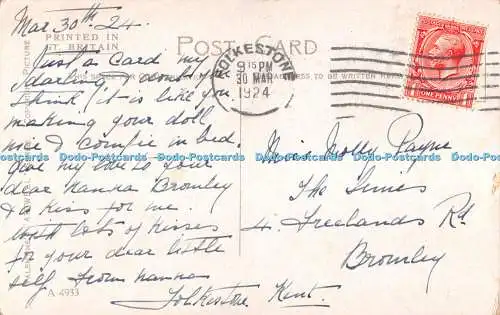 Mar 30th 24.
PRINTED IN
GT. BRITAIN
POST CARD
FOLKESTONE
9 15 PM
30 MAR
1924
ONE PENNY
Just a Card my
darling & don't you
think it is like you
making your doll
nice & comfie in bed.
Give my love to your
dear Nanna Bromley
& a kiss for me.
With lots of kisses
for your dear little
self from Nanna
Folkestone Kent.
Miss Molly Payne
The Limes
4. Freelands Rd
Bromley
ADDRESS TO BE WRITTEN HERE
Dodo-Postcards Dodo-Postcards Dodo-Postcards Dodo-Postcards Dodo-Postcards Dodo-Postcards Dodo-Postcards
A 4933